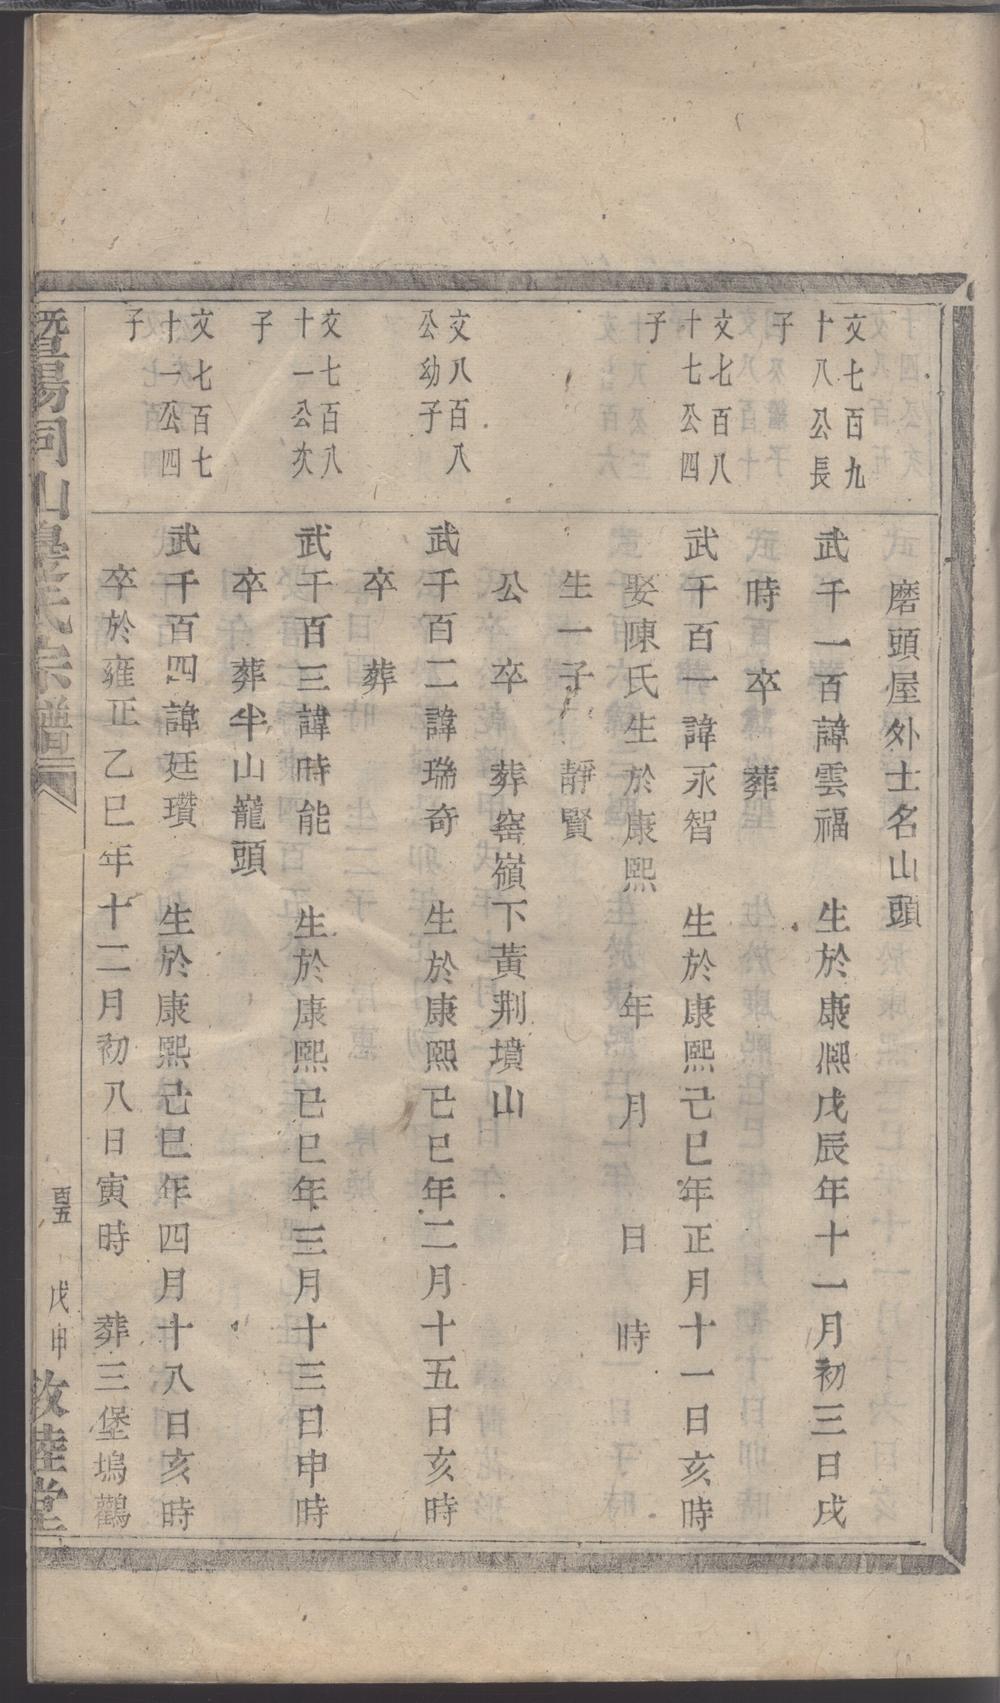 磨頭屋外士名山頭
文七百九
十八公長
子
武千一百諱雲福　生於康熙戊辰年十一月初三日戌
時　卒　葬
文七百八
十七公四
子
武千百一諱永智　生於康熙己巳年正月十一日亥時
娶陳氏生於康熙　年　月　日　時
生一子　靜賢
公　卒　葬窰嶺下黃荆墳山
文八百八
公幼子
武千百二諱瑞奇　生於康熙己巳年二月十五日亥時
卒　葬
文七百八
十一公次
子
武千百三諱時能　生於康熙己巳年三月十三日申時
卒　葬半山巃頭
文七百七
十一公四
子
武千百四諱廷瓚　生於康熙己巳年四月十八日亥時
卒於雍正乙巳年十二月初八日寅時　葬三堡塢鸛
暨陽同山邊氏宗譜
百五
戊申
敦睦堂